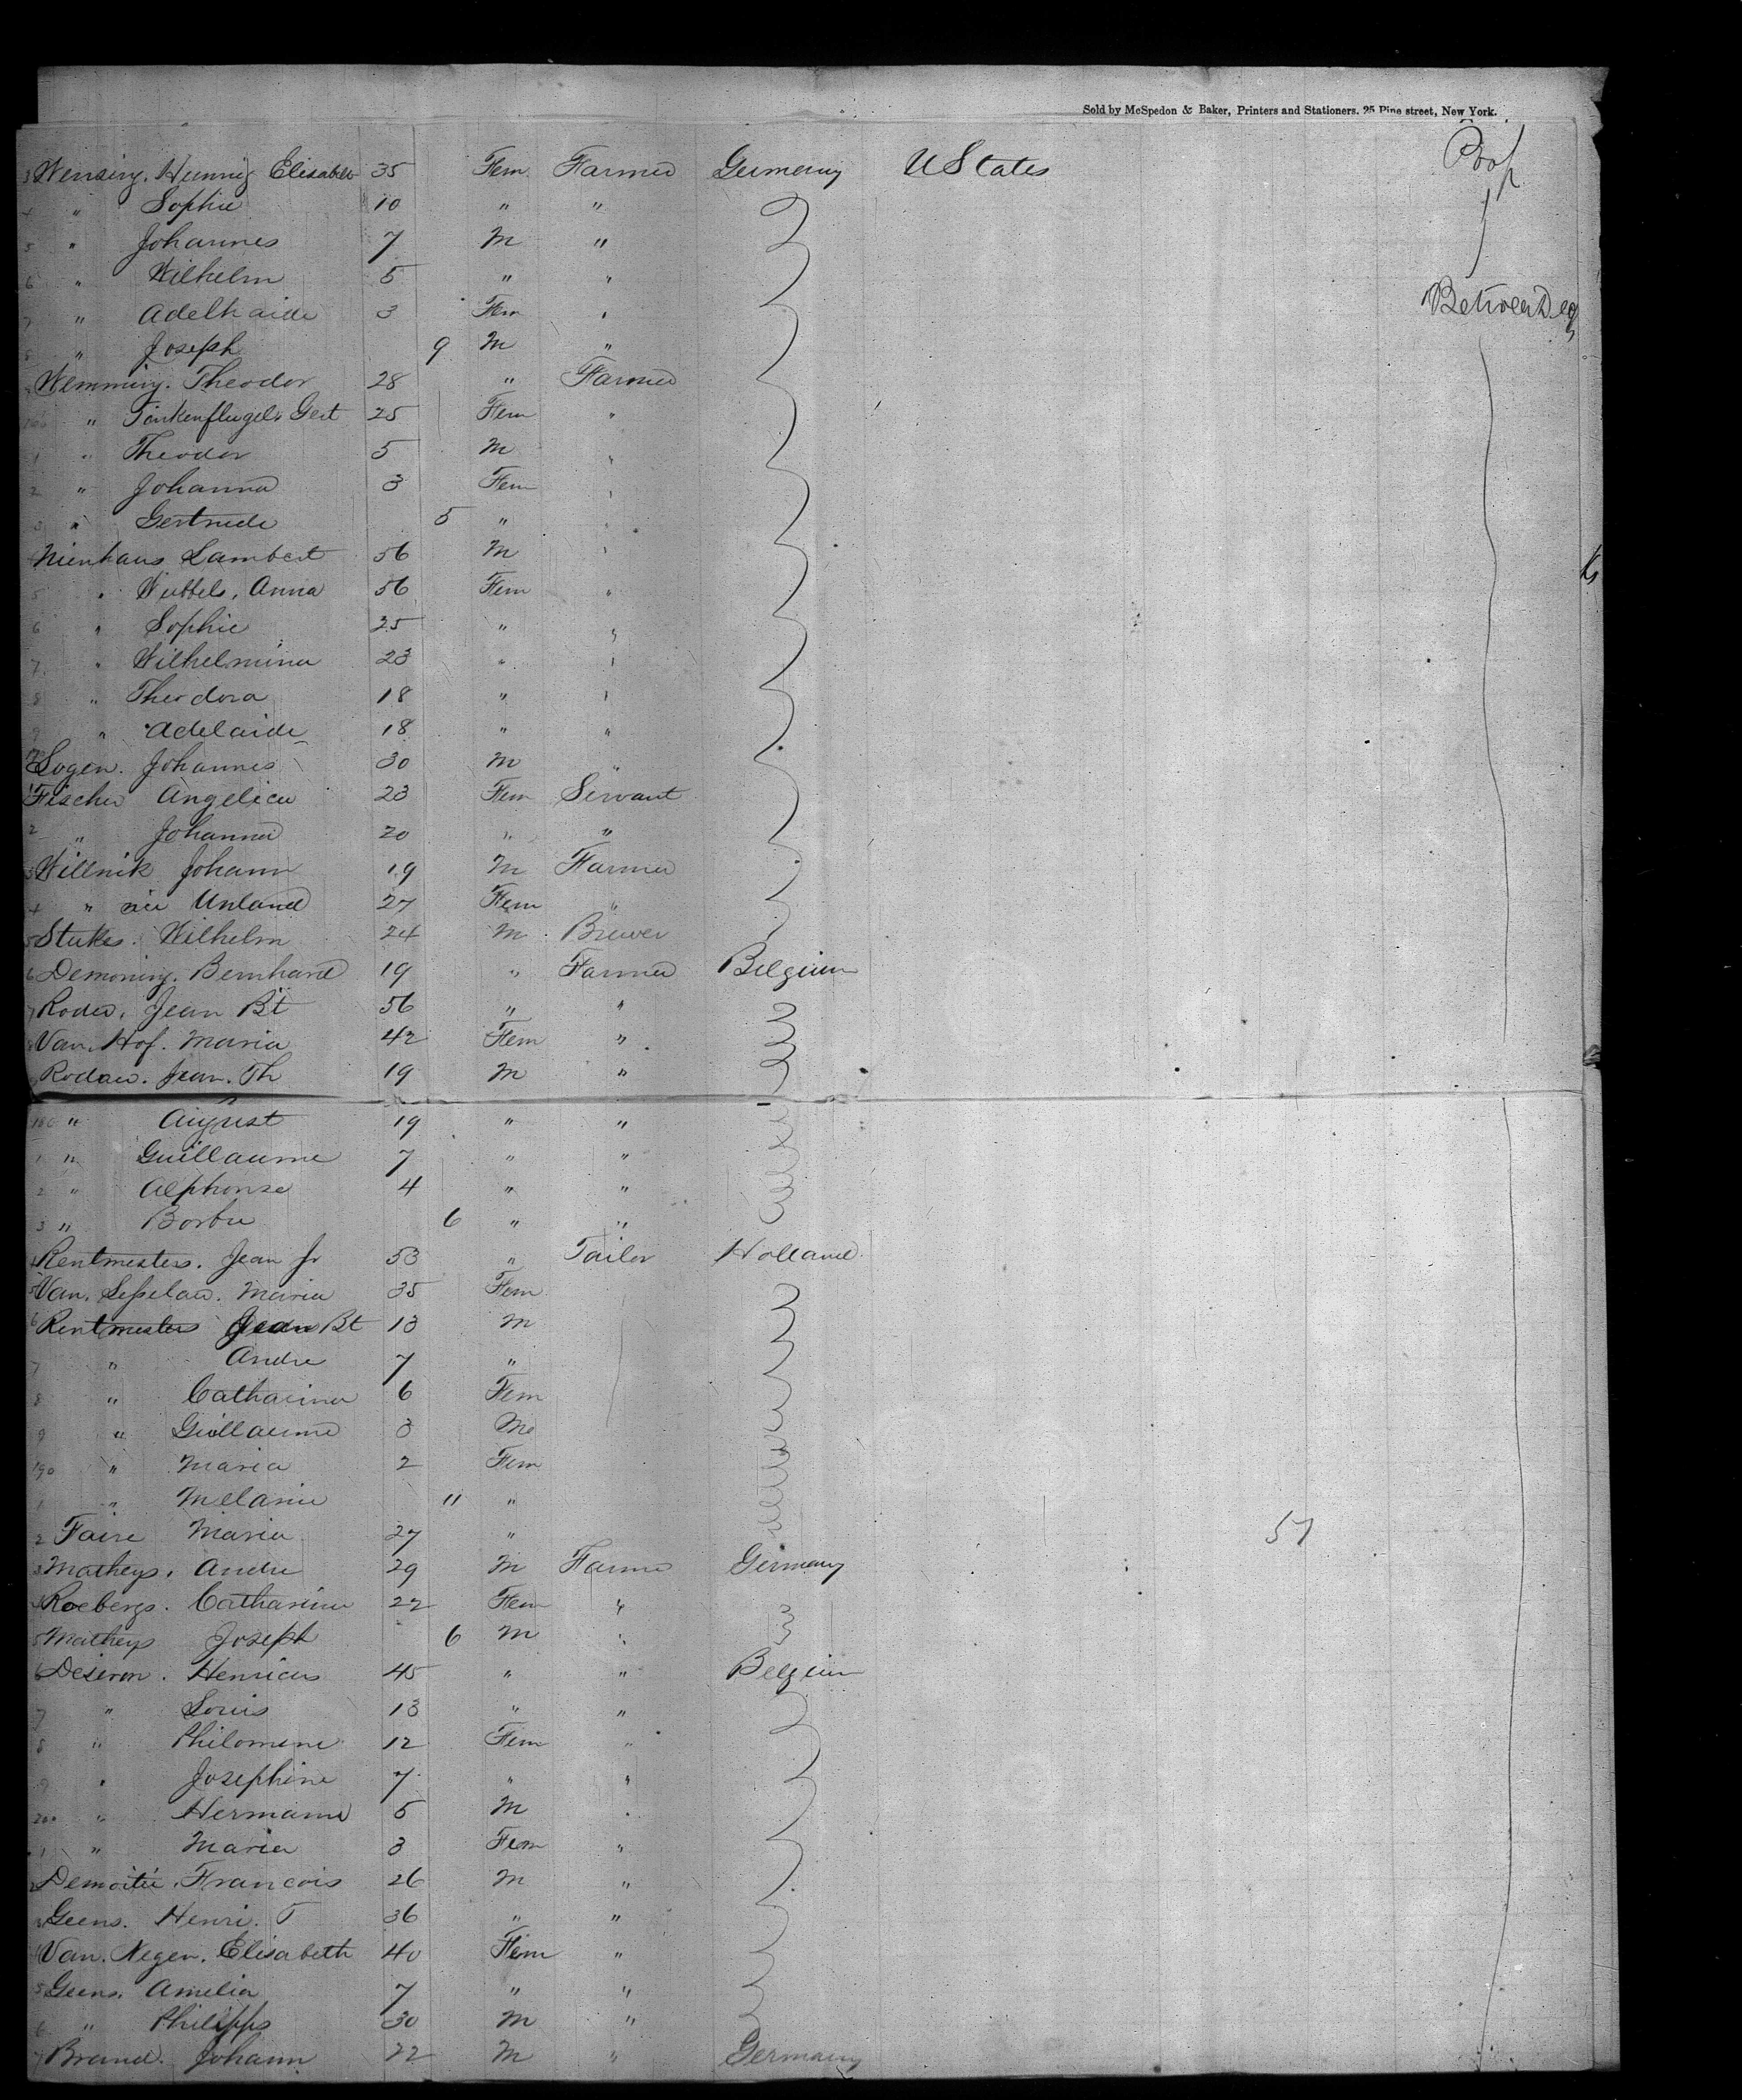 Sold by McSpedon & Baker, Printers and Stationers. 25 Pine street, New York.
3 Wensing. Hennig Elisabeth 35 Fem Farmer Germany U States
4 " Sophie 10 " "
5 " Johannes 7 M "
6 " Wilhelm 5 " "
7 " Adelhaide 3 Fem " Between Deq
8 " Joseph 9 M "
Wemming. Theodor 28 " Farmer
" Gert 25 Fem "
1 " Theodor 5 M "
2 " Johanna 3 Fem "
3 " Gertrude 5 " "
Nienhaus Lambert 56 M "
5 " Wubbels, Anna 56 Fem "
6 " Sophie 25 " "
7 " Wilhelmina 23 " "
8 " Theodora 18 " "
9 " Adelaide 18 " "
Johannes 30 M "
1 Fischer Angelica 23 Fem Servant
2 " Johanna 20 " "
3 Willnik Johann 19 M Farmer
4 " Unland 27 Fem "
5 Stukes. Wilhelm 24 M Brewer
6 Demoning. Bernhard 19 " Farmer Belgium
7 Jean Bt 56 " "
Van. Hof. Maria 42 Fem "
Jean. Th 19 M "
180 " August 19 " "
1 " Guillaume 7 " "
2 " Alphonse 4 " "
3 " 6 " "
Rentmesters. Jean Jr 53 " Tailor Holland
5 Van. Maria 35 Fem
6 Rentmesters Jean Bt 13 M
7 " Andre 7 "
8 " Catharina 6 Fem
9 " Guillaume 3 M
190 " Maria 2 Fem
1 " Melanie 11 "
2 Faire Maria 27 " 57
3 Matheys. Andre 29 M Farmer Germany
Roebergs. Catharina 22 Fem "
5 Matheys Joseph 6 M "
6 Henricus 45 " " Belgium
7 " Louis 13 " "
8 " Philomine 12 Fem "
9 " Josephine 7 " "
200 " Hermann 5 M "
1 " Maria 3 Fem "
2 Francois 26 M "
3 Geens. Henri. T 36 " "
4 Van. Negen. Elisabeth 40 Fem "
5 Geens. Amelia 7 " "
6 " Philipps 30 M "
7 Brand. Johann 22 M " Germany